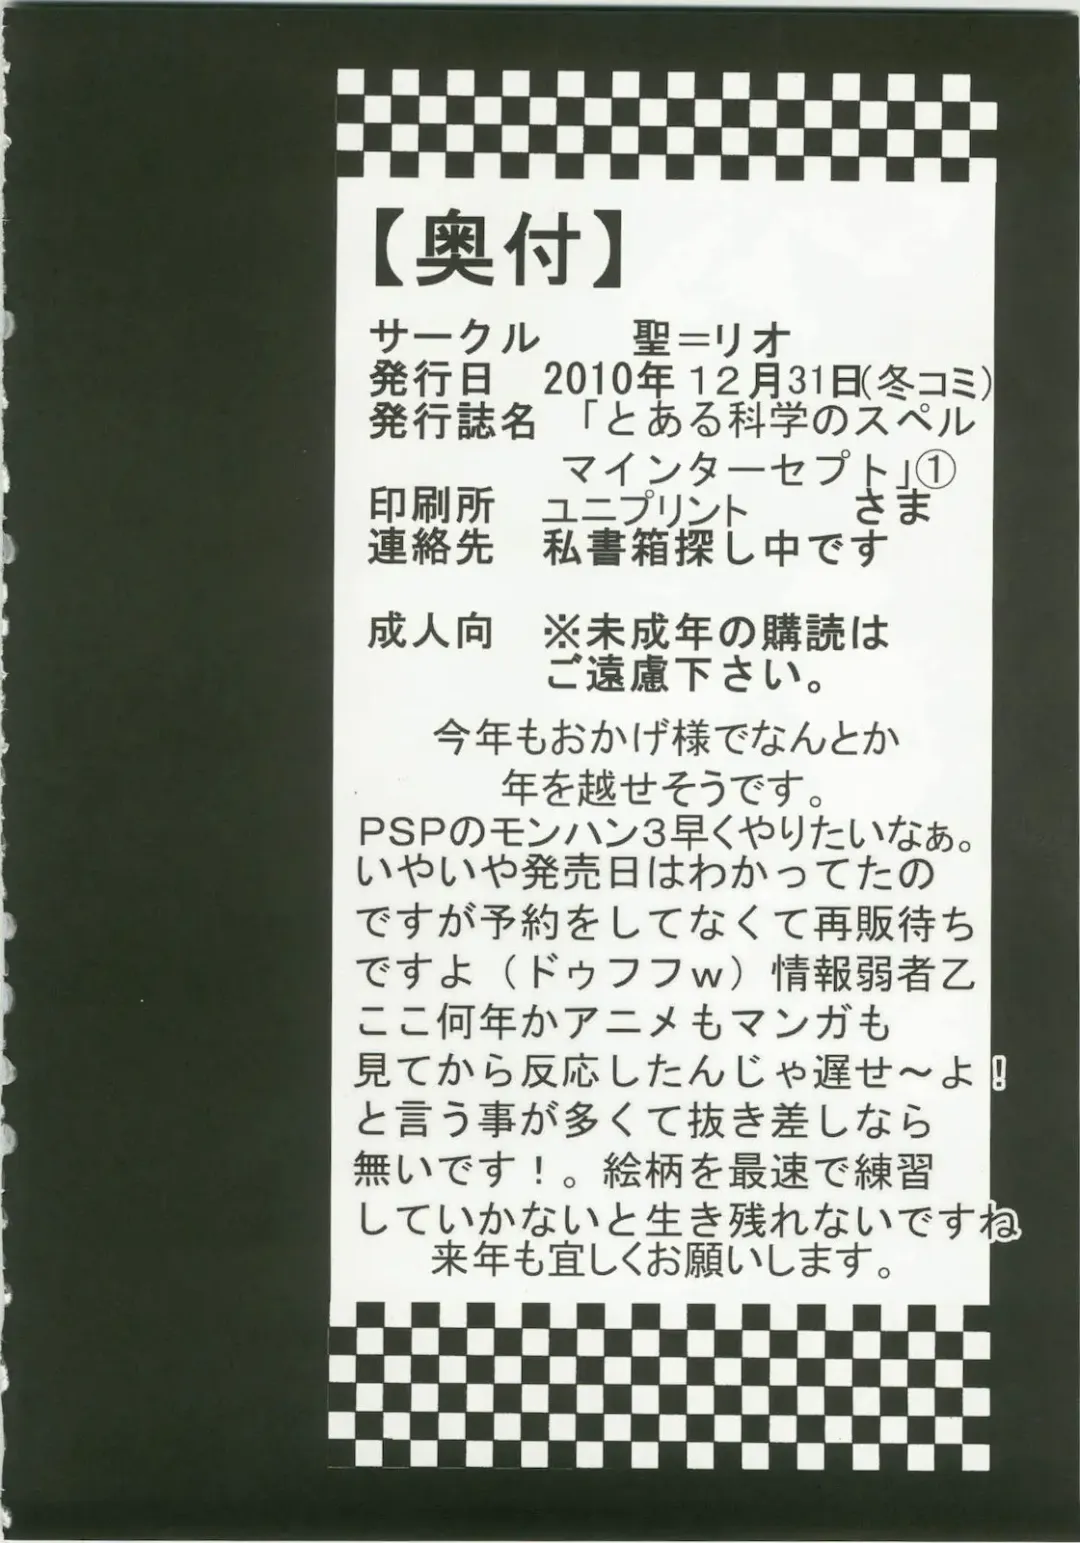 【奥付】
サークル 聖=リオ
発行日 2010年12月31日(冬コミ)
発行誌名 「とある科学のスペル
マインターセプト」①
印刷所 ユニプリント さま
連絡先 私書箱探し中です
成人向 ※未成年の購読は
ご遠慮下さい。
今年もおかげ様でなんとか
年を越せそうです。
PSPのモンハン3早くやりたいなぁ。
いやいや発売日はわかってたの
ですが予約をしてなくて再販待ち
ですよ(ドゥフフw)情報弱者乙
ここ何年かアニメもマンガも
見てから反応したんじゃ遅せ~よ!
と言う事が多くて抜き差しなら
無いです!。絵柄を最速で練習
していかないと生き残れないですね
来年も宜しくお願いします。